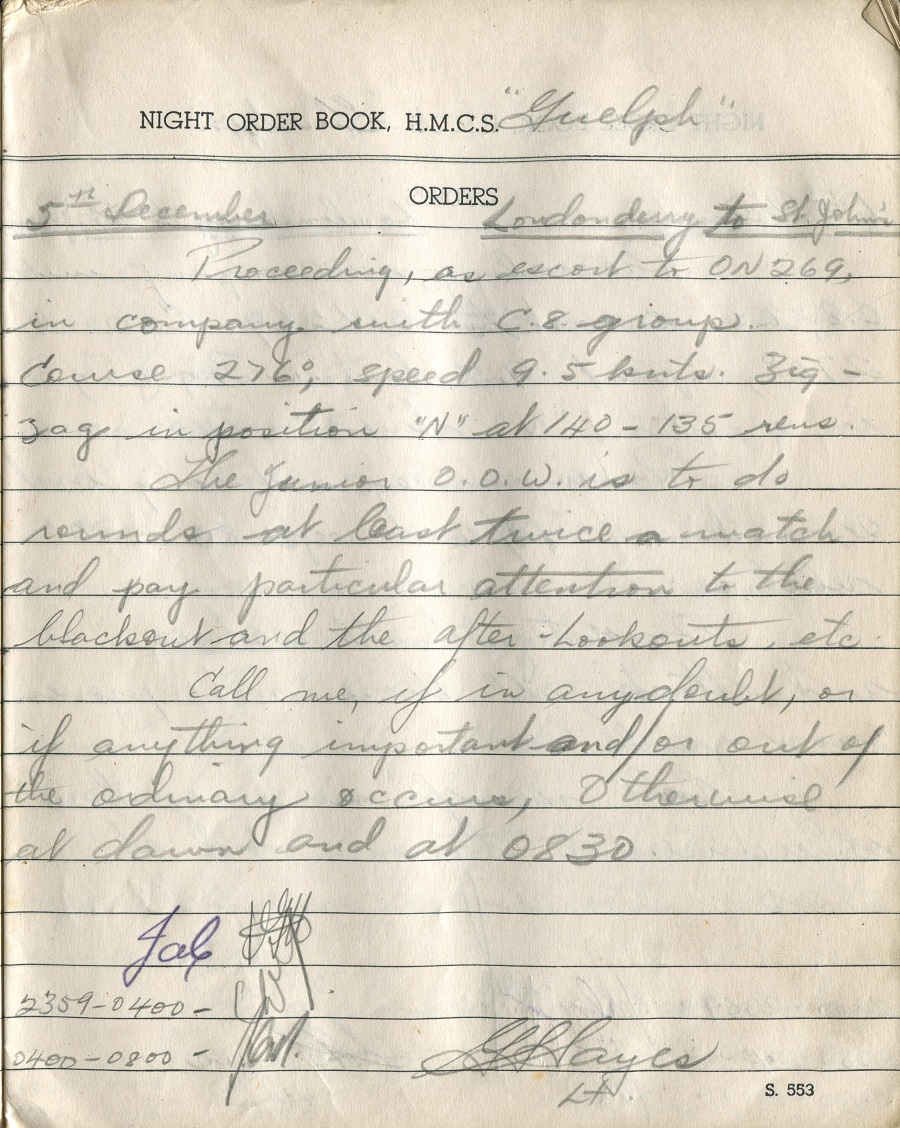 NIGHT ORDER BOOK, H.M.C.S. "Guelph"
ORDERS
5th December Londonderry to St. John's
Proceeding, as escort to ON 269,
in company with C.8. group.
Course 276°, speed 9.5 knts. Zig-
zag in position "N" at 140-135 revs.
The Junior O.O.W. is to do
rounds at least twice a watch
and pay particular attention to the
blackout and the after-Lookouts, etc.
Call me, if in any doubt, or
if anything important and/or out of
the ordinary occurs, Otherwise
at dawn and at 0830.
2359-0400-
0400-0800-
Hayes
Lt
S. 553